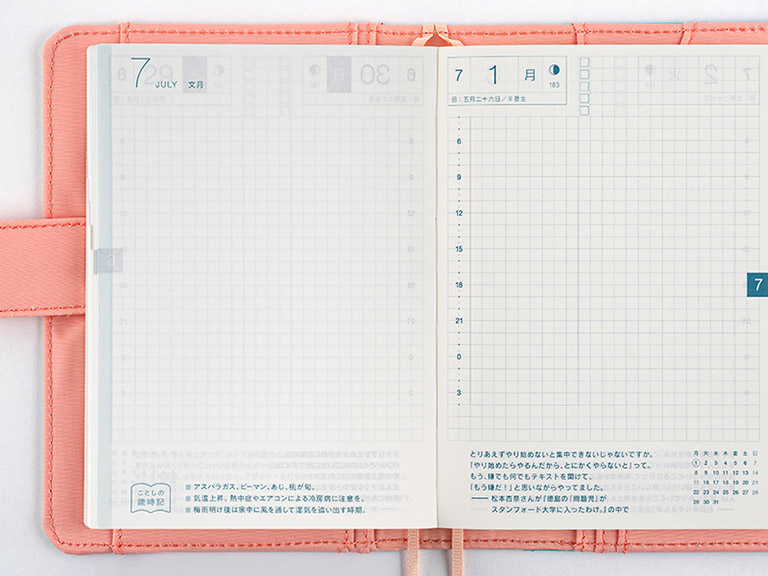 7
JULY 文月
ことしの
歳時記
■ アスパラガス、ピーマン、あじ、桃が旬。
■ 気温上昇。熱中症やエアコンによる冷房病に注意を。
■ 梅雨明け後は家中に風を通して湿気を追い出す時期。
7 1 月
183
旧：五月二十六日／半夏生
6
9
12
15
18
21
0
3
7
とりあえずやり始めないと集中できないじゃないですか。
「やり始めたらやるんだから、とにかくやらないと」って。
もう、嫌でも何でもテキストを開けて、
「もう嫌だ！」と思いながらやってました。
—— 松本杏奈さんが『徳島の「問題児」が
スタンフォード大学に入ったわけ。』の中で
月 火 水 木 金 土 日
1 2 3 4 5 6 7
8 9 10 11 12 13 14
15 16 17 18 19 20 21
22 23 24 25 26 27 28
29 30 31